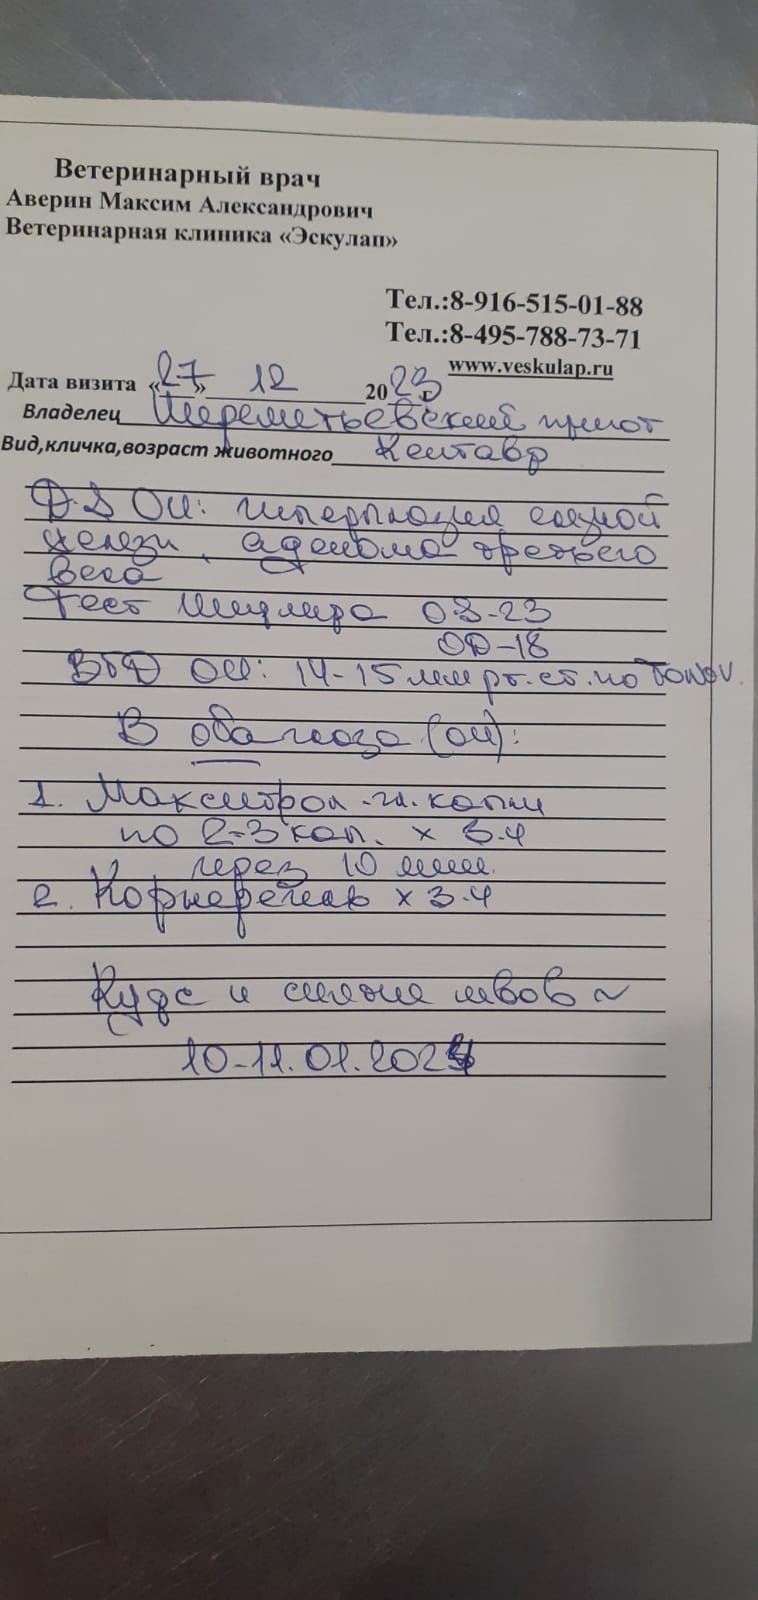 Ветеринарный врач
Аверин Максим Александрович
Ветеринарная клиника «Эскулап»
Тел.:8-916-515-01-88
Тел.:8-495-788-73-71
www.veskulap.ru
Дата визита «27» 12 2023 г
Владелец Шереметьевский приют
Вид,кличка,возраст животного Кентавр
Д.S OU: гиперплазия слезной
железы, аденома третьего
века
Тест Ширмера OS-23
OD-18
ВГД OU: 14-15 мм рт.ст. по Tonov.
В оба глаза (OU):
1. Макситрол -гл. капли
по 2-3 кап. х 3.ч
через 10 мин.
2. Корнерегель х 3.ч
Курс и снятие швов ~
10-11.01.2024